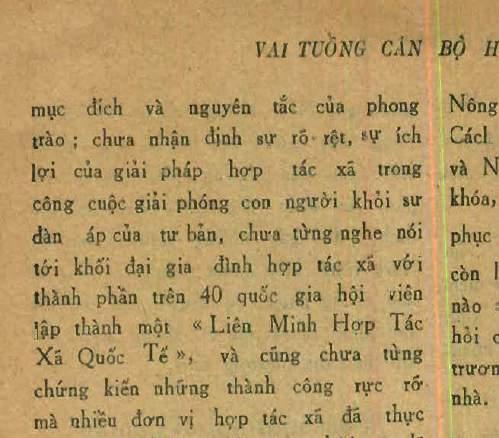 VAI TUỒNG CÁN BỘ H
mục đích và nguyên tắc của phong
trào ; chưa nhận định sự rõ rệt, sự ích
lợi của giải pháp hợp tác xã trong
công cuộc giải phóng con người khỏi sư
đàn áp của tư bản, chưa từng nghe nói
tới khối đại gia đình hợp tác xã với
thành phần trên 40 quốc gia hội viên
lập thành một « Liên Minh Hợp Tác
Xã Quốc Tế », và cũng chưa từng
chứng kiến những thành công rực rỡ
mà nhiều đơn vị hợp tác xã đã thực
Nông
Cácl
và N
khóa,
phục
còn
nào
hỏi c
trươn
nhà.